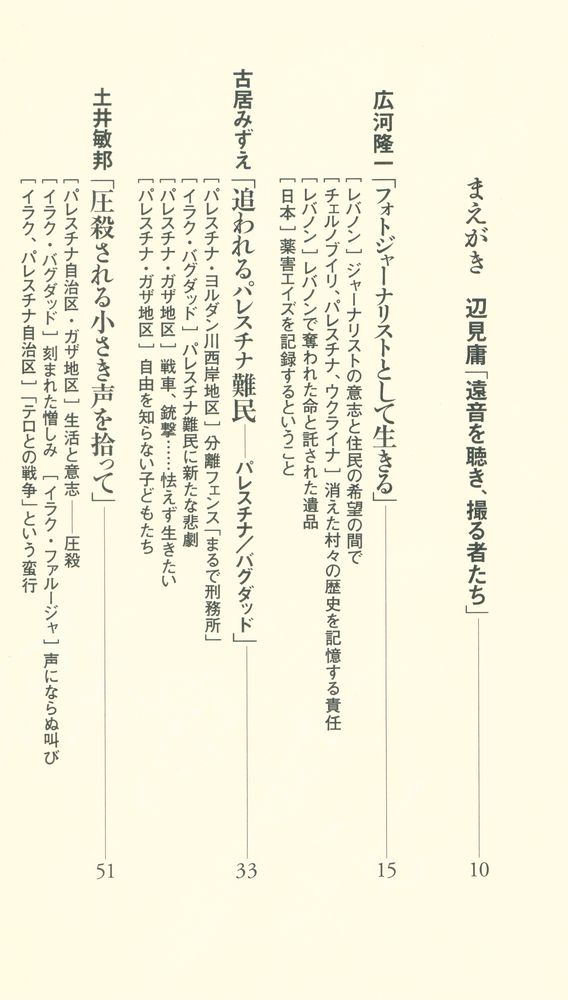 まえがき　辺見庸「遠音を聴き、撮る者たち」 10
広河隆一「フォトジャーナリストとして生きる」 15
［レバノン］ジャーナリストの意志と住民の希望の間で
［チェルノブイリ、パレスチナ、ウクライナ］消えた村々の歴史を記憶する責任
［レバノン］レバノンで奪われた命と託された遺品
［日本］薬害エイズを記録するということ
古居みずえ「追われるパレスチナ難民──パレスチナ／バグダッド」 33
［パレスチナ・ヨルダン川西岸地区］分離フェンス「まるで刑務所」
［イラク・バグダッド］パレスチナ難民に新たな悲劇
［パレスチナ・ガザ地区］戦車、銃撃……怯えず生きたい
［パレスチナ・ガザ地区］自由を知らない子どもたち
土井敏邦「圧殺される小さき声を拾って」 51
［パレスチナ自治区・ガザ地区］生活と意志──圧殺
［イラク・バグダッド］刻まれた憎しみ　［イラク・ファルージャ］声にならぬ叫び
［イラク、パレスチナ自治区］「テロとの戦争」という蛮行